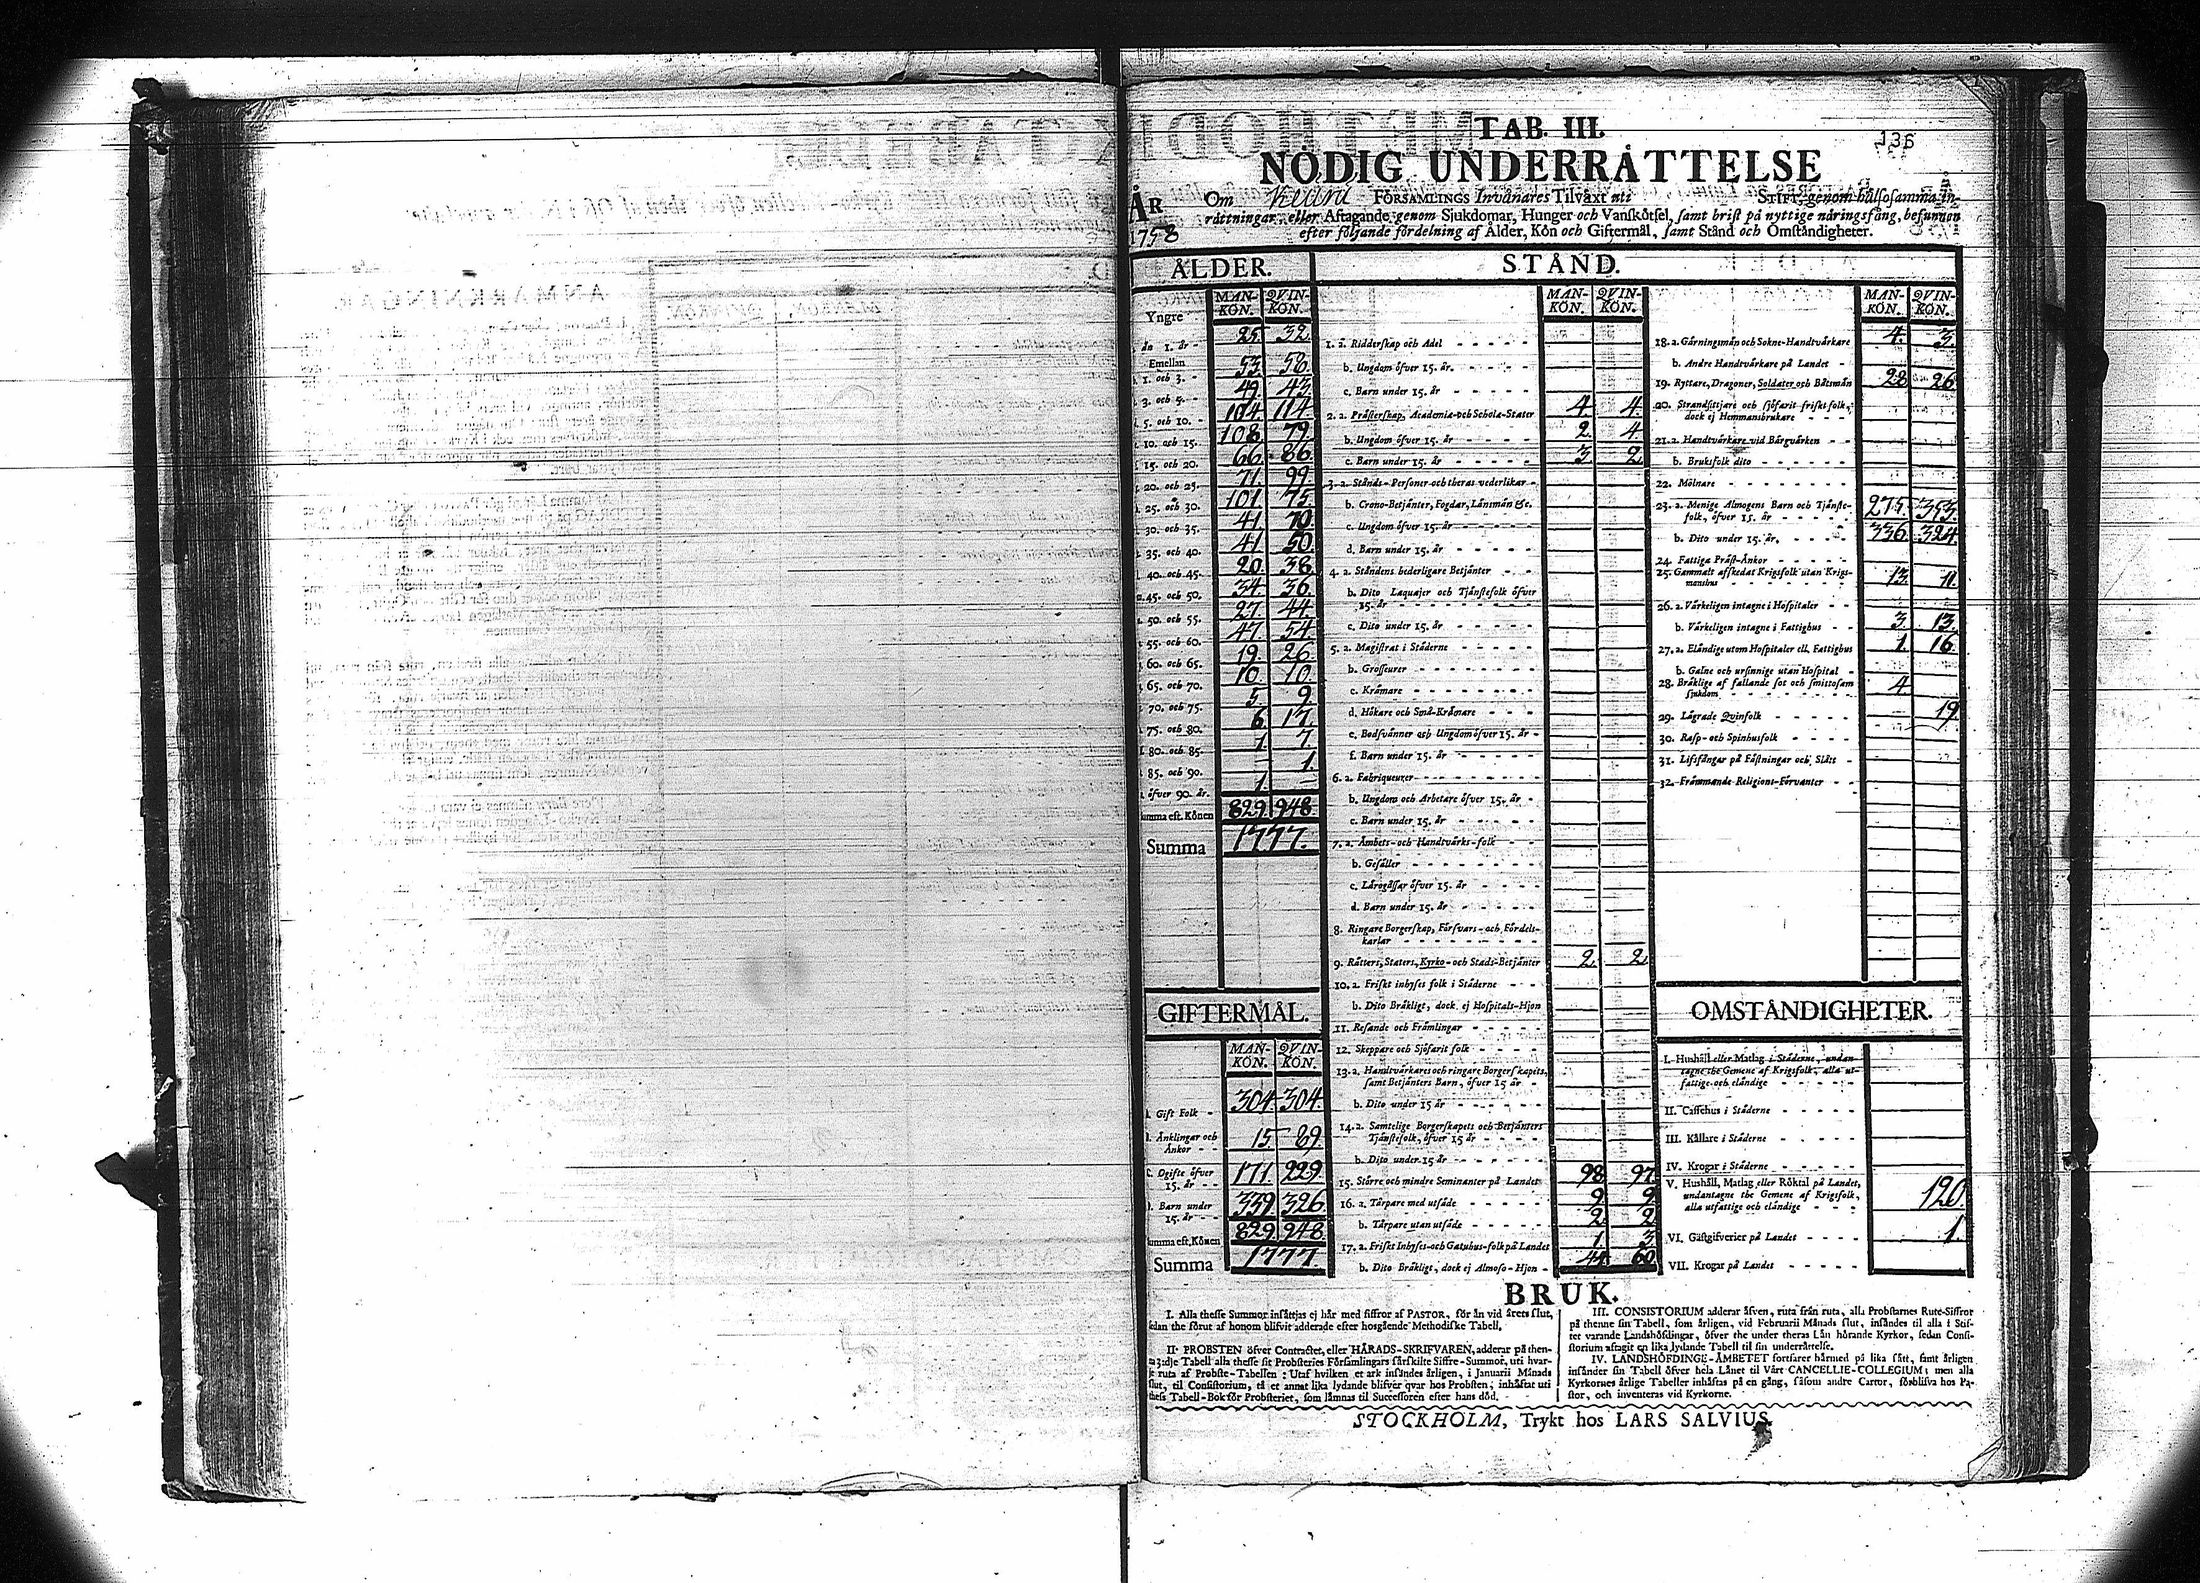 TAB. III.
136
NÖDIG UNDERRÅTTELSE
ÅR 1758
Om Keuru FÖRSAMLINGS Invånares Tilväxt uti STIFT, genom hälsosamma in-
råttningar eller Aftagande genom Sjukdomar, Hunger och Vanskötsel, samt brist på nyttige näringsfång, befunnen
efter följande fördelning af Ålder, Kön och Giftermål, samt Stånd och Omståndigheter.
ÅLDER.
MAN-KÖN. QVIN-KÖN.
Yngre
än 1. år - 25. 32.
Emellan
1. och 3. - 53 58.
3. och 5. - 49. 43
5. och 10. - 104 114.
10. och 15. 108. 79.
15. och 20. 66. 86.
20. och 25. 71. 99.
25. och 30. 101. 75.
30. och 35. 41. 70.
35. och 40. 41. 50.
40. och 45. 20. 38.
45. och 50. 34. 36.
50. och 55. 27. 44
55. och 60. 47. 54.
60. och 65. 19. 26.
65. och 70. 10. 10.
70. och 75. 5. 9.
75. och 80. 6. 17.
80. och 85. 1. 7.
85. och 90. 1.
öfver 90. år. 1.
Summa eft. Könen 829. 948.
Summa 1777.
GIFTERMÅL.
MAN-KÖN. QVIN-KÖN.
Gift Folk - 304. 304.
Änklingar och
Änkor - - 15 89.
C. Ogifte öfver
15. år - - 171. 229.
Barn under
15. år - - 339. 326.
Summa eft. Könen 829. 948.
Summa 1777.
STÅND.
MAN-KÖN. QVIN-KÖN.
1. a. Ridderskap och Adel
b. Ungdom öfver 15. år.
c. Barn under 15. år
2. a. Prästerskap, Academiæ-och Scholæ-Stater 4. 4.
b. Ungdom öfver 15. år 2. 4.
c. Barn under 15. år 3. 2.
3. a. Stånds-Personer och theras vederlikar
b. Crono-Betjänter, Fogdar, Länsmän &c.
c. Ungdom öfver 15. år
d. Barn under 15. år
4. a. Ståndens hederligare Betjänter
b. Dito Laquajer och Tjänstefolk öfver
15. år
c. Dito under 15. år
5. a. Magistrat i Städerne
b. Grosseurer
c. Krämare
d. Hökare och Små-Krämare
e. Bodsvänner och Ungdom öfver 15. år
f. Barn under 15. år
6. a. Fabriqueurer
b. Ungdom och Arbetare öfver 15. år
c. Barn under 15. år
7. a. Ämbets-och Handtvärks-folk
b. Gesäller
c. Lärogåssar öfver 15. år
d. Barn under 15. år
8. Ringare Borgerskap, Försvars-och Fördels-
karlar
9. Rätters, Staters, Kyrko-och Stads-Betjänter 2. 2.
10. a. Friskt inhyses folk i Städerne
b. Dito Bräkligt, dock ej Hospitals-Hjon
11. Resande och Främlingar
12. Skeppare och Sjöfarit folk
13. a. Handtvärkares och ringare Borgerskapets,
samt Betjänters Barn, öfver 15 år
b. Dito under 15 år
14. a. Samtelige Borgerskapets och Betjänters
Tjänstefolk, öfver 15 år
b. Dito under 15 år
15. Större och mindre Hemmanster på Landet 98 97.
16. a. Tårpare med utsäde 9. 9.
b. Tårpare utan utsäde 2. 2.
17. a. Friskt Inhyses-och Gatuhus-folk på Landet 1. 3.
b. Dito Bräkligt, dock ej Almoso-Hjon 44. 60.
MAN-KÖN. QVIN-KÖN.
18. a. Gärningsmän och Sokne-Handtvärkare 4. 3.
b. Andre Handtvärkare på Landet
19. Ryttare, Dragoner, Soldater och Båtsmän 28 26
20. Strandsittjare och sjöfarit friskt folk,
dock ej Hemmansbrukare
21. a. Handtvärkare vid Bärgvärken
b. Bruksfolk dito
22. Mölnare
23. a. Menige Almogens Barn och Tjänste-
folk, öfver 15. år 275. 353.
b. Dito under 15. år. 336. 324.
24. Fattiga Präst-Änkor
25. Gammalt afskedat Krigsfolk utan Krigs-
manshus 13. 11.
26. a. Värkeligen intagne i Hospitaler
b. Värkeligen intagne i Fattighus 3. 13.
27. a. Eländige utom Hospitaler ell. Fattighus 1. 16.
b. Galne och ursinnige utan Hospital
28. Bräklige af fallande sot och smittosam
sjukdom 4
29. Lägrade Qvinfolk 19.
30. Rasp-och Spinhusfolk
31. Lifsfångar på Fästningar och Slått
32. Främmande Religions-Förvanter
OMSTÅNDIGHETER.
I. Hushåll eller Matlag i Städerne, undan-
tagne the Gemene af Krigsfolk, alla ut-
fattige och eländige
II. Caffehus i Städerne
III. Källare i Städerne
IV. Krogar i Städerne
V. Hushåll, Matlag eller Röktal på Landet,
undantagne the Gemene af Krigsfolk,
alla utfattige och eländige 120.
VI. Gästgifverier på Landet 1.
VII. Krogar på Landet
BRUK.
I. Alla thesse Summor insättjas ej här med siffror af PASTOR, för än vid årets slut,
sedan the förut af honom blifvit adderade efter hosgående Methodiske Tabell.
II. PROBSTEN öfver Contractet, eller HÄRADS-SKRIFVAREN, adderar på then-
na 3:dje Tabell alla thesse sit Probsteries Församlingars särskilte Siffre-Summor, uti hvar-
je ruta af Probste-Tabellen: Utaf hvilken et ark insändes årligen, i Januarii Månads
slut, til Consistorium, tå et annat lika lydande blifver qvar hos Probsten; inhäftat uti
thess Tabell-Bok för Probsteriet, som lämnas til Successoren efter hans död.
III. CONSISTORIUM adderar äfven, ruta från ruta, alla Probstarnes Rute-Siffror
på thenne sin Tabell, som årligen, vid Februarii Månads slut, insändes til alla i Stif-
tet varande Landshöfdingar, öfver the under theras Län hörande Kyrkor, sedan Consi-
storium aftagit en lika lydande Tabell til sin underrättelse.
IV. LANDSHÖFDINGE-ÄMBETET fortfarer härmed på lika sätt, samt årligen
insänder sin Tabell öfver hela Länet til Vårt CANCELLIE-COLLEGIUM; men alla
Kyrkornes årlige Tabeller inhäftas på en gång, såsom andre Cartor, förblifva hos Pa-
stor, och inventeras vid Kyrkorne.
STOCKHOLM, Trykt hos LARS SALVIUS.